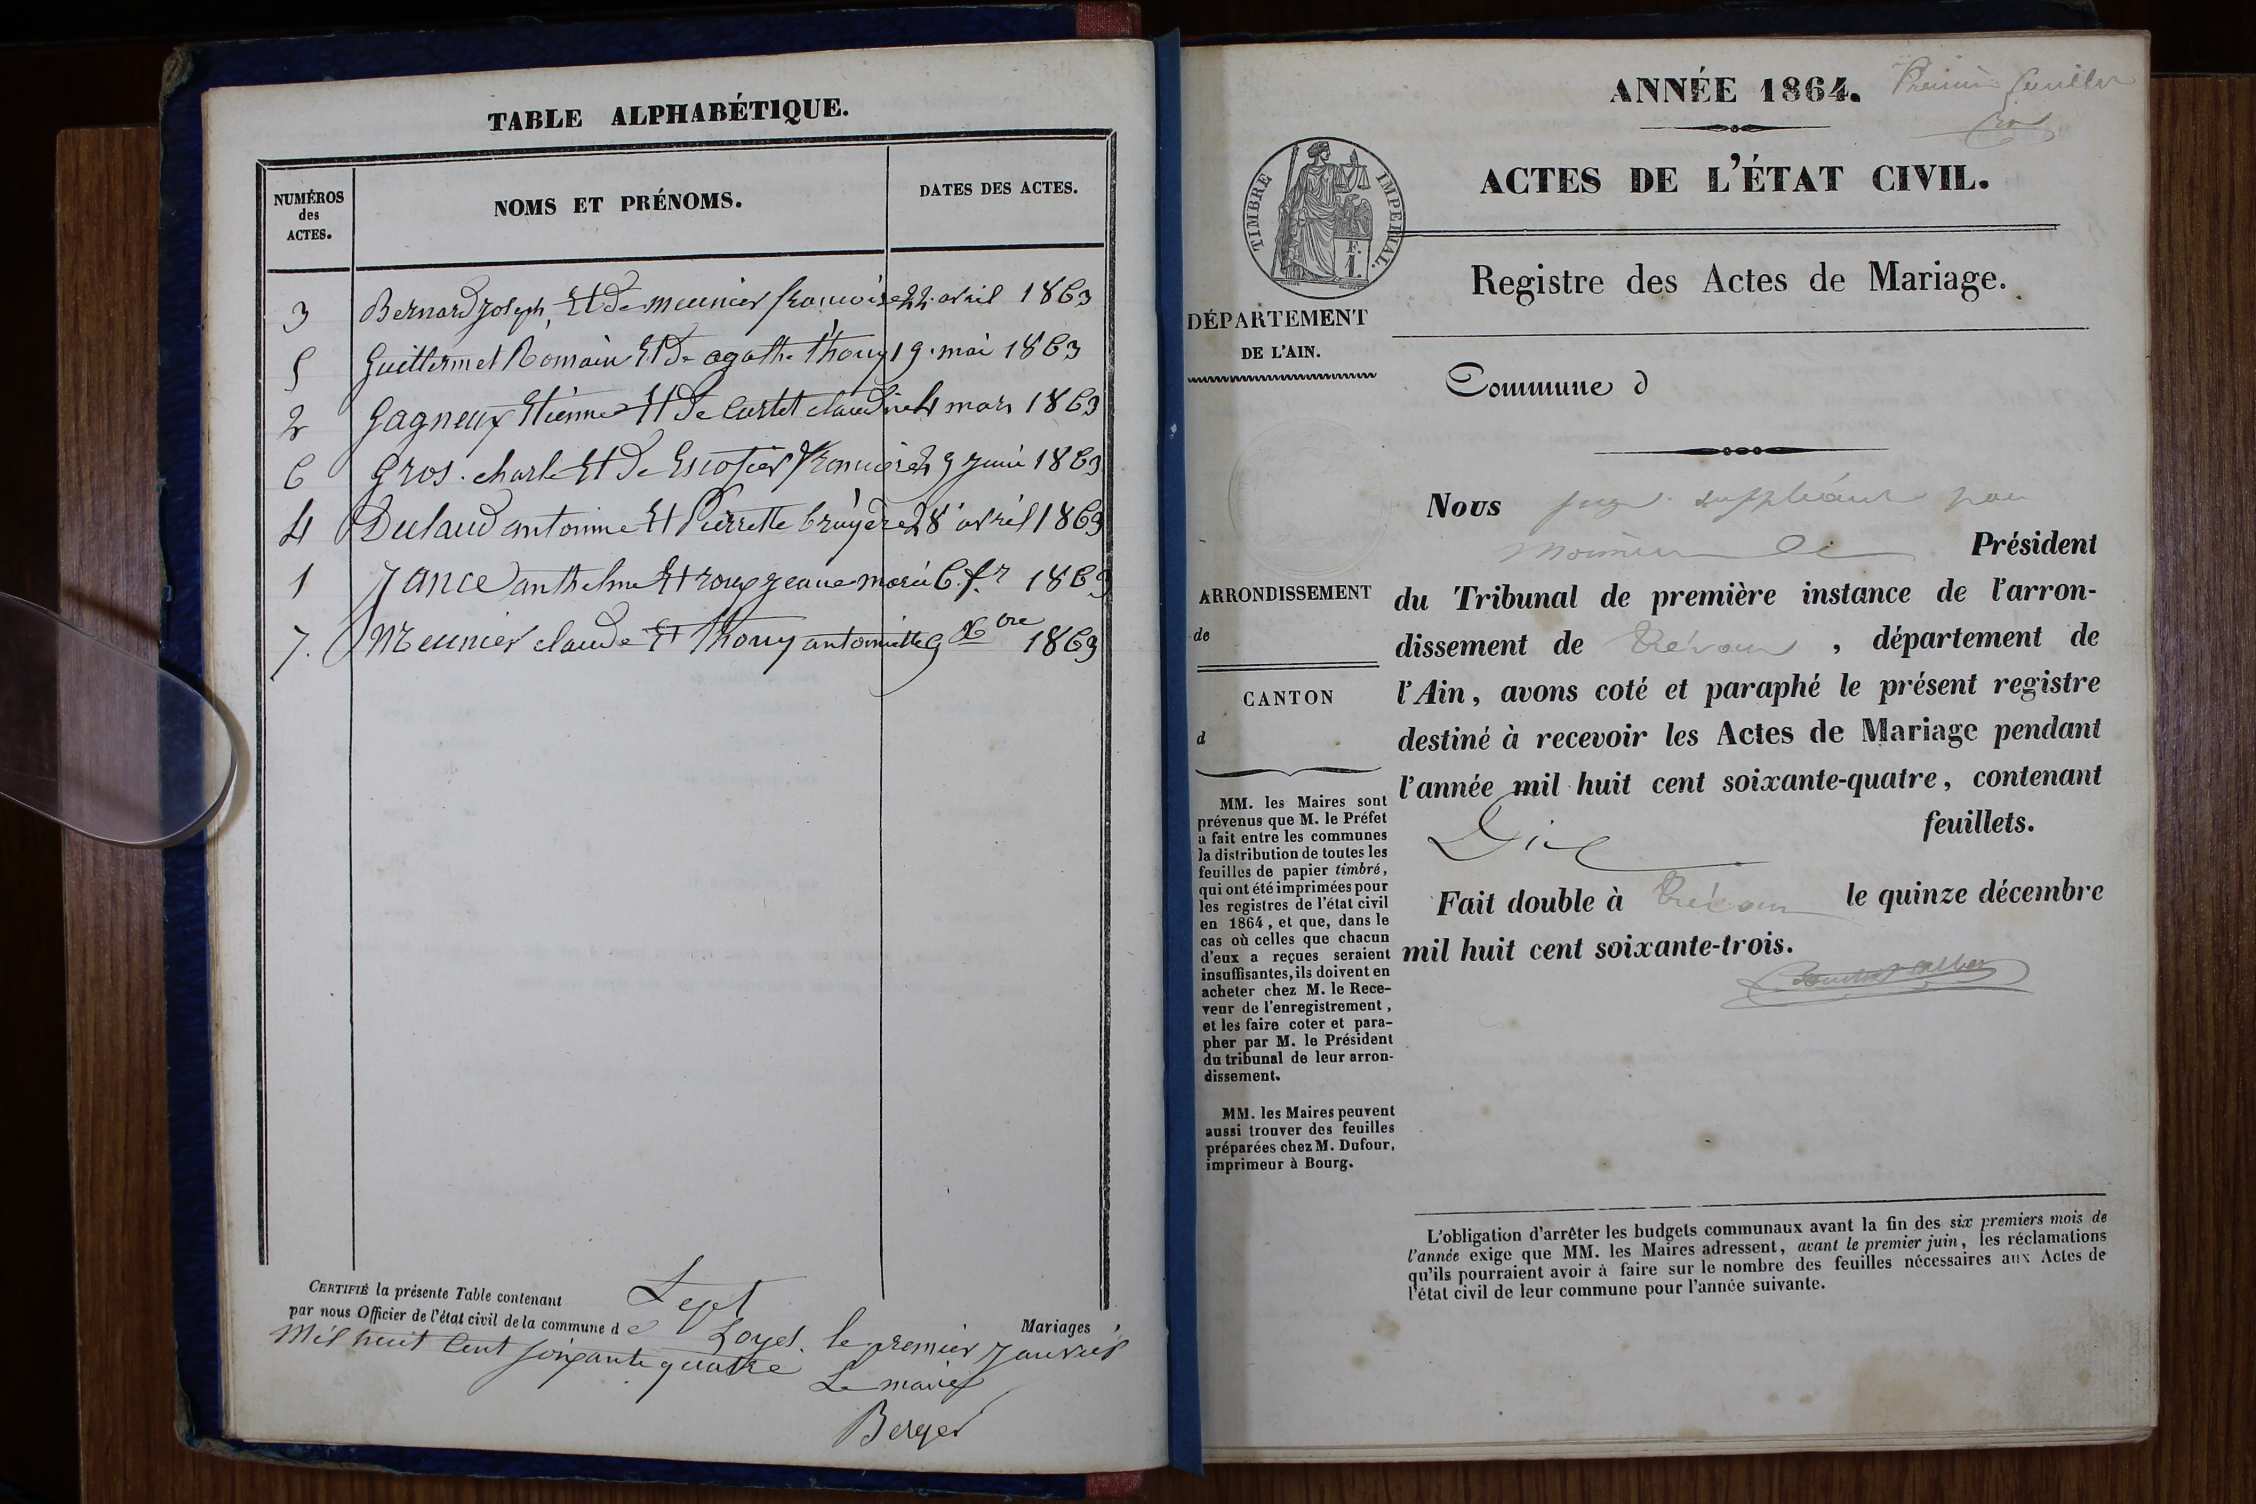 TABLE ALPHABÉTIQUE.
NUMÉROS
des
ACTES.
NOMS ET PRÉNOMS.
DATES DES ACTES.
3 Bernard joseph, Et de meunier françoise 22 avril 1863
5 Guillermet Romain Et de agathe thouy 19 mai 1863
2 Gagneux Etienne Et de Curtet claudine 4 mars 1863
6 Gros charle Et de Escofier françoise 29 juin 1863
4 Dulaud antoinne Et Pierrette bruyère 28 avril 1863
1 Jance anthelme Et roux jeanne marie 6 fr 1863
7. Meunier claude Et thouy antoinette 9 Xbre 1863
CERTIFIÉ la présente Table contenant Sept Mariages
par nous Officier de l'état civil de la commune de Loyes. le premier janvier
Mil huit Cent soixante quatre
Le maire
Berger
ANNÉE 1864.
Premier feuillet
ACTES DE L'ÉTAT CIVIL.
TIMBRE IMPERIAL.
F.
1.
Registre des Actes de Mariage.
DÉPARTEMENT
DE L'AIN.
Commune d
ARRONDISSEMENT
de
CANTON
d
MM. les Maires sont
prévenus que M. le Préfet
a fait entre les communes
la distribution de toutes les
feuilles de papier timbré,
qui ont été imprimées pour
les registres de l'état civil
en 1864, et que, dans le
cas où celles que chacun
d'eux a reçues seraient
insuffisantes, ils doivent en
acheter chez M. le Rece-
veur de l'enregistrement,
et les faire coter et para-
pher par M. le Président
du tribunal de leur arron-
dissement.
MM. les Maires peuvent
aussi trouver des feuilles
préparées chez M. Dufour,
imprimeur à Bourg.
Nous juge suppléant pour
Monsieur le Président
du Tribunal de première instance de l'arron-
dissement de Trévoux, département de
l'Ain, avons coté et paraphé le présent registre
destiné à recevoir les Actes de Mariage pendant
l'année mil huit cent soixante-quatre, contenant
Dix feuillets.
Fait double à Trévoux le quinze décembre
mil huit cent soixante-trois.
L'obligation d'arrêter les budgets communaux avant la fin des six premiers mois de
l'année exige que MM. les Maires adressent, avant le premier juin, les réclamations
qu'ils pourraient avoir à faire sur le nombre des feuilles nécessaires aux Actes de
l'état civil de leur commune pour l'année suivante.